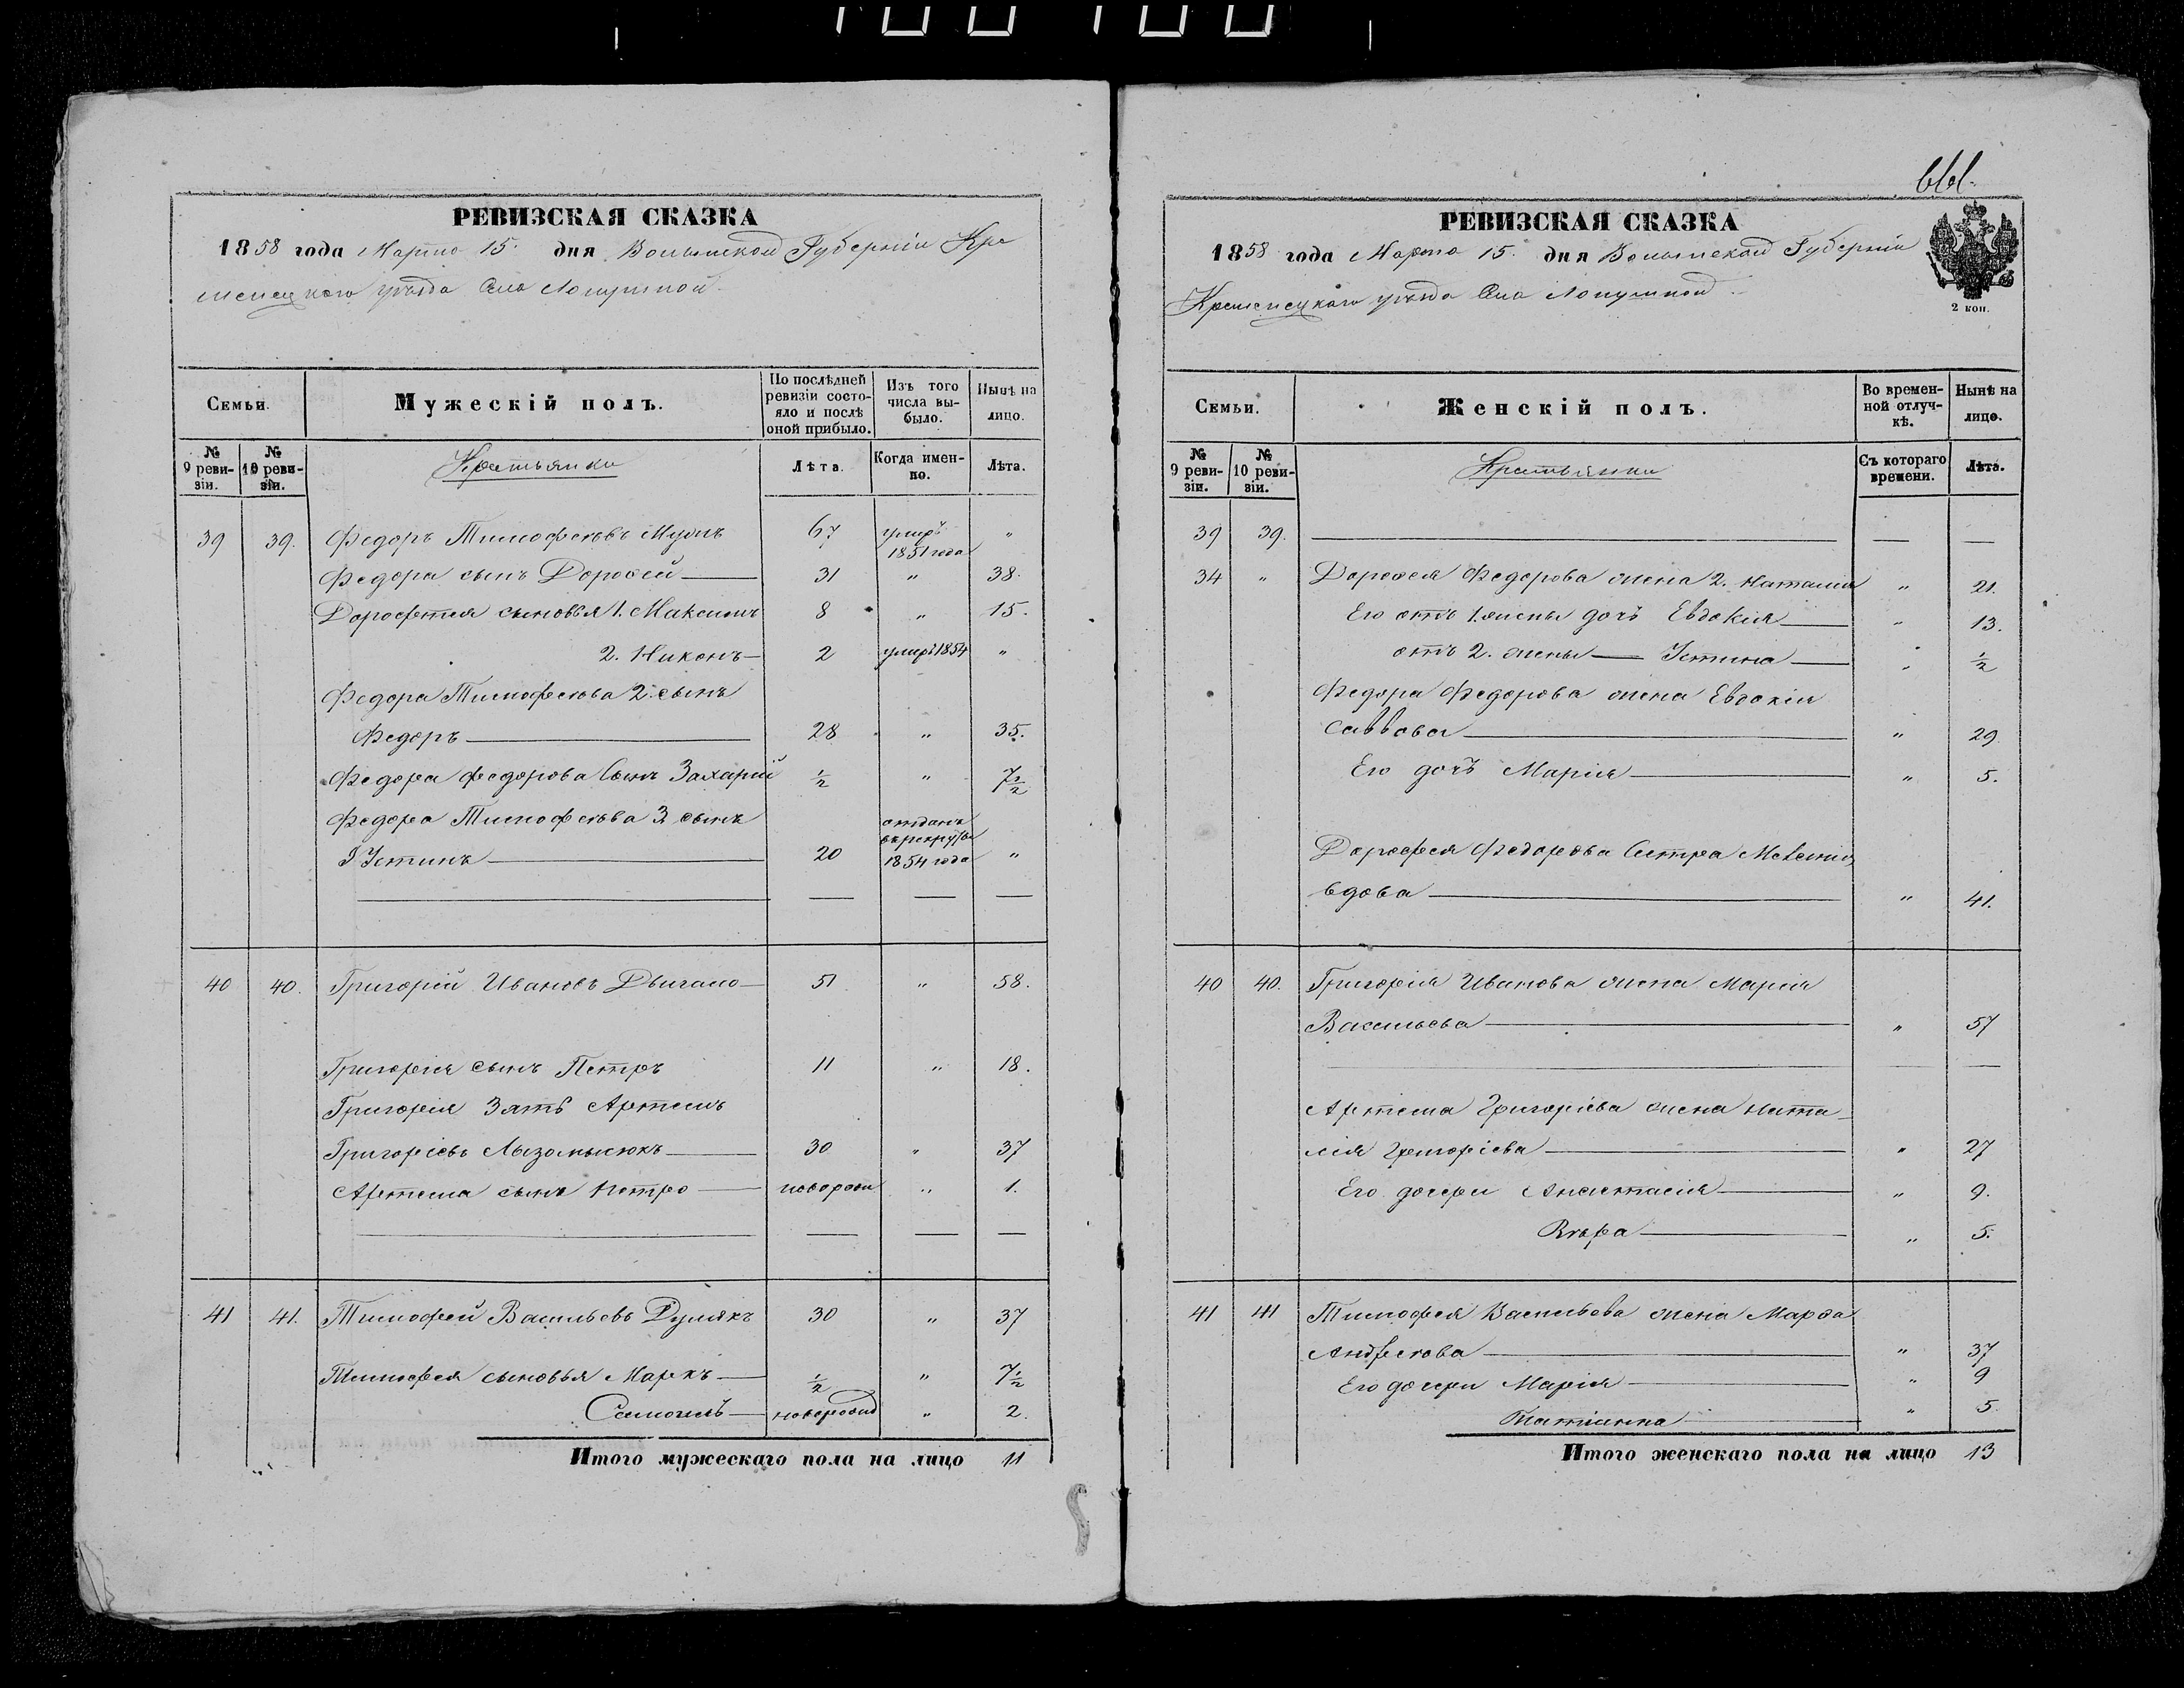 РЕВИЗСКАЯ СКАЗКА
1858 года Марта 15 дня Волынской Губерніи Кре
менецкого уезда Села Лопушной
Семьи.
Мужескій полъ.
По послѣдней ревизіи состояло и послѣ оной прибыло.
Изъ того числа выбыло.
Нынѣ на лицо.
№ 9 ревизіи.
№ 10 ревизіи.
Крестьяне
Лѣта.
Когда именно.
Лѣта.
39 39. Федоръ Тимофеевъ 67 умеръ 1851 года "
Федора сынъ Дорофей 31 " 38.
Дорофтея сыновья 1. Максимъ 8 " 15.
2. Никонъ 2 умеръ 1854 "
Федора Тимофеева 2. сынъ
Федоръ 28 " 35.
Федора Федорова Сынъ Захарий ½ " 7½
Федора Тимофеева 3 сынъ
Устинъ 20 отданъ в рекруты 1854 года "
40 40. Григорій Ивановъ 51 " 58.
Григорія сынъ Петръ 11 " 18.
Григорія Зять Артемъ
Григоріевъ 30 " 37
Артема сынъ Петро новорож " 1.
41 41. Тимофей Васильевъ Думякъ 30 " 37
Тимофея сыновья Маркъ ½ " 7½
Самоилъ новорожд " 2.
Итого мужескаго пола на лицо 11
РЕВИЗСКАЯ СКАЗКА
1858 года Марта 15. дня Волынской Губерніи
Кременецкого уезда Села Лопушной
2 коп.
Семьи.
Женскій полъ.
Во временной отлучкѣ.
Нынѣ на лицо.
№ 9 ревизіи.
№ 10 ревизіи.
Крестьянки
Съ котораго времени.
Лѣта.
39 39.
34 " Дорофея Федорова жена 2. Наталия " 21.
Его отъ 1. жены дочь Евдокія " 13.
отъ 2. жены Устина " ½
Федора Федорова жена Евдокія
Саввова " 29
Его дочь Марія " 5.
Дорофея Федорова Сестра
вдова " 41.
40 40. Григорія Иванова жена Марія
Васильева " 57
Артема Григоріева жена Ната
лія Григоріева " 27
Его дочери Анастасія " 9.
Вѣра " 5.
41 41 Тимофея Васильева жена Марѳа
Андреева " 37
Его дочери Марія " 9
Татіанна " 5
Итого женскаго пола на лицо 13